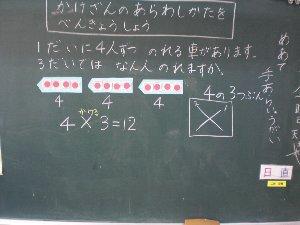 かけざんのあらわしかたを
べんきょうしよう
1だいに4人ずつのれる車があります。
3だいではなんにんのれますか。
4 4 4
4の3つぶん
かける
4×3=12
めあて
日直